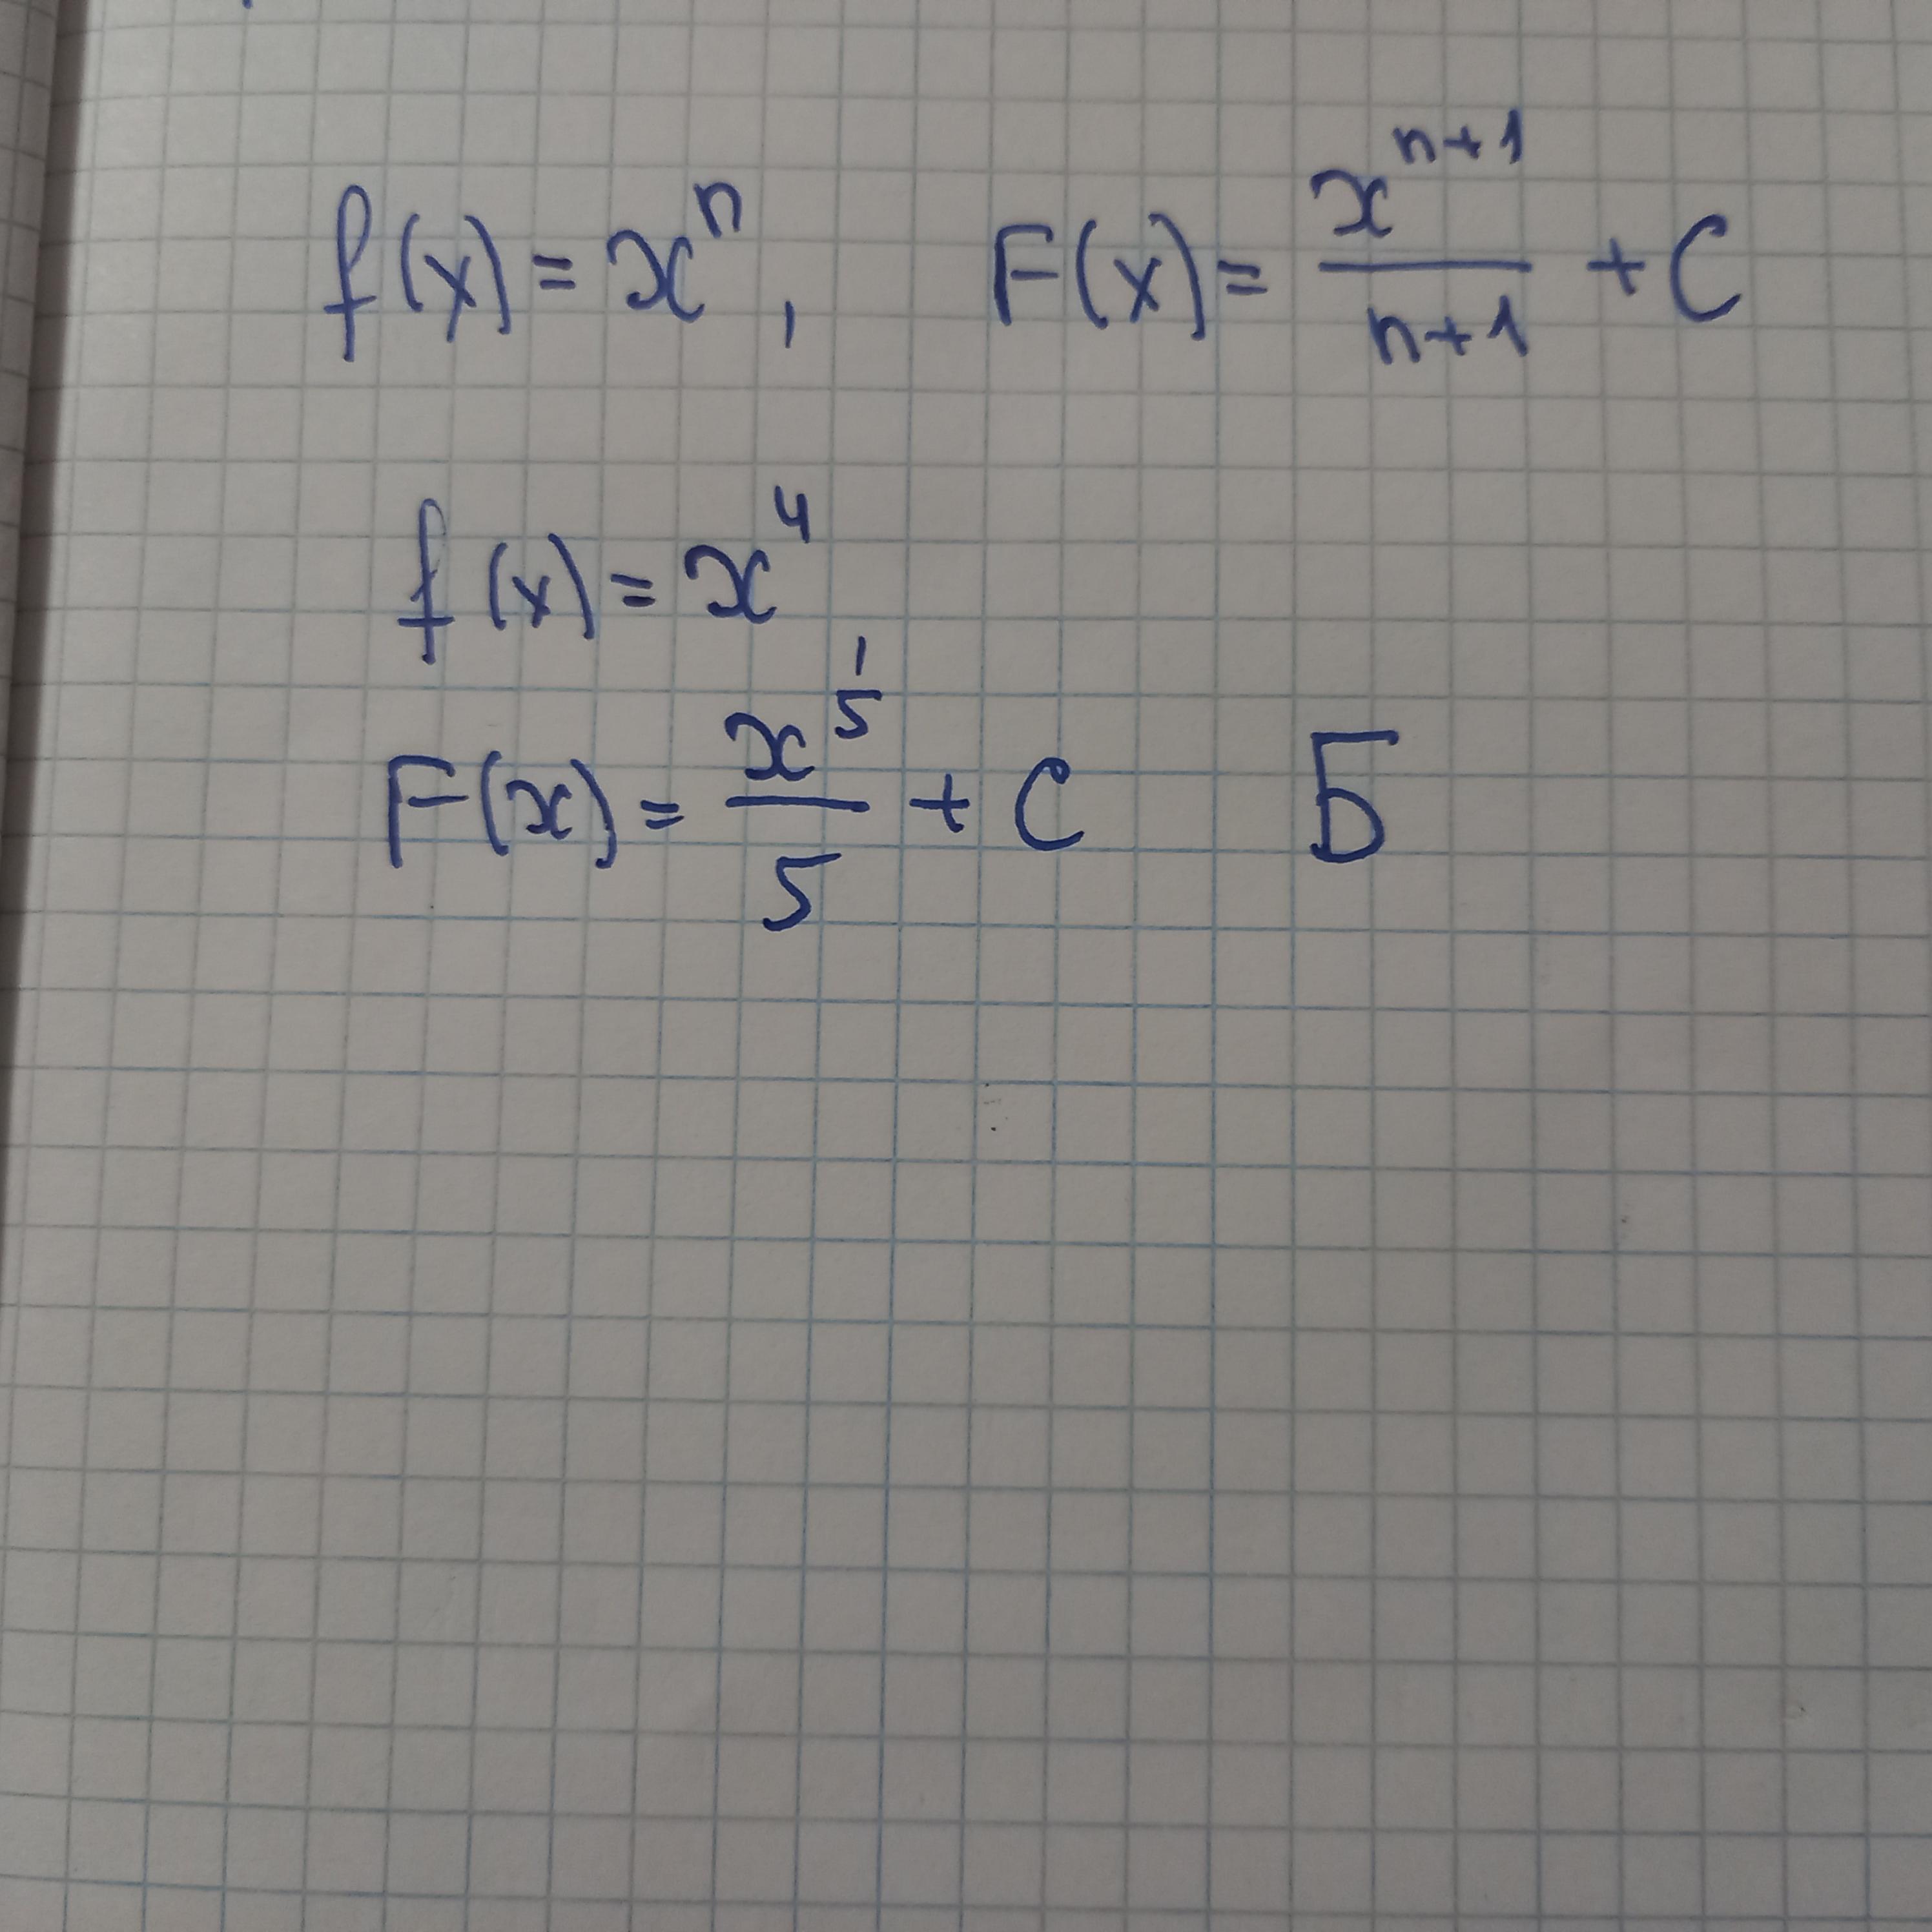 f(x) = x^n, F(x) = x^(n+1)/(n+1) + C
f(x) = x^4
F(x) = x^(1/5)/5 + C Б